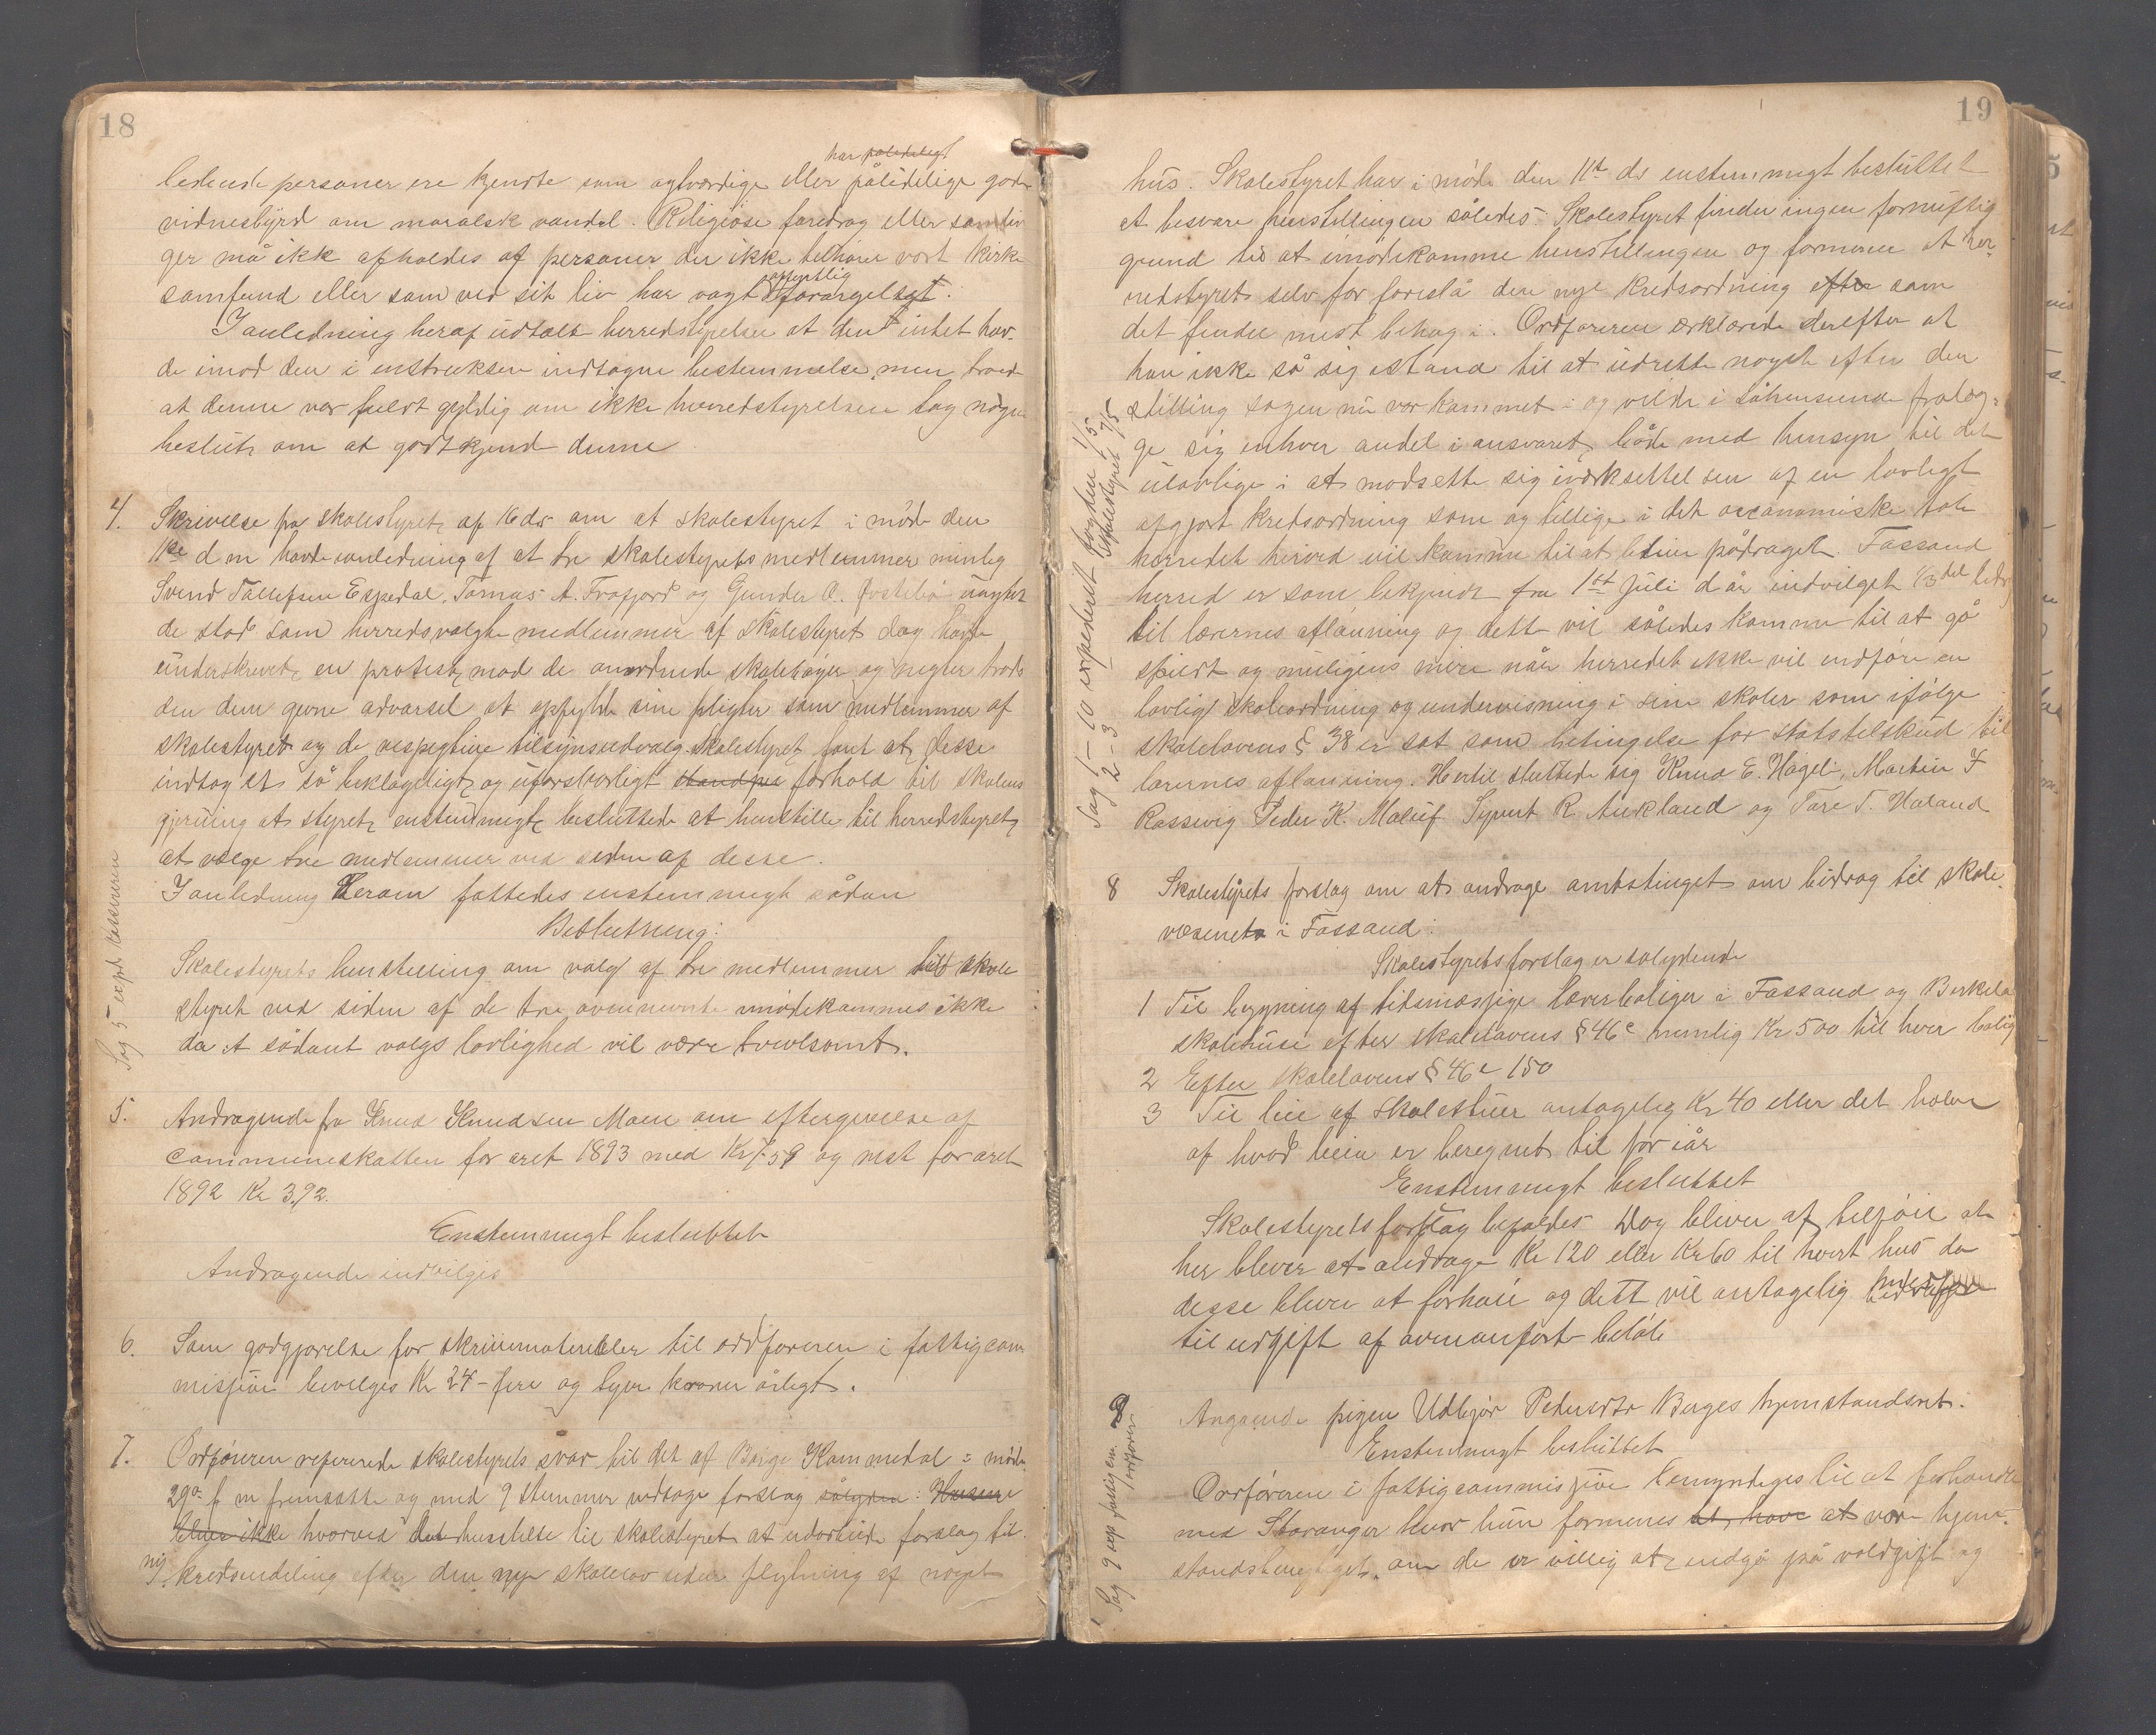 18
har pålideligt
ledende personer ere kjendte som agtværdige eller pålidelige gode
vidnesbyrd om moralsk vandel. Religiøse foredrag eller samlin
ger må ikke afholdes af personer der ikke tilhører vort kirke
samfund eller som ved sit liv har vagt offentlig forargelse.
I anledning heraf udtalte herredstyrelsen at den intet hav-
de imod den i instruksen indtagne bestemmelse, men troede
at denne var fuldt gyldig om ikke herredstyrelsen tog nogen
beslut, om at godkjende denne
4. Skrivelse fra skolestyret, af 16 ds om at skolestyret i møde den
11te d m havde anledning af at tre skolestyrets medlemmer nemlig
Svend Tollefsen Espedal, Tomas A. Frafjord og Gunder O. uagtet
de stod som herredsvalgte medlemmer af skolestyret dog havde
underskrevet, en protest, mod de anordnede skolebøger og negter trods
den dem givne advarsel at opfylde sine pligter som medlemmer af
skolestyret og de respegtive tilsynsudvalg. Skolestyret, fant at, desse
indtog et, så beklageligt, og uforsvarligt standpu forhold til skolens
gjerning at styret, enstemmigt, besluttede at henstille til herredstyret,
at vælge tre medlemmer ved siden af desse.
I anledning herom fattedes enstemmigt sådan
Beslutning:
Skolestyrets henstilling om valg af tre medlemmer til skole
styret ved siden af de tre ovennævnte imødekommes ikke
da et sådant valgs lovlighed vil være tvivlsomt.
Sag 5 expd kassereren
5. Andragende fra Knud Knudsen Moen om eftergivelse af
communeskatten for året 1893 med Kr 7.59 og rest for året
1892 Kr 3,92.
Enstemmigt besluttet
Andragende indvilges
6. Som godgjørelse for skrivematerialier til ordføreren i fattigcom
misjion bevilges Kr 24 - fire og tyve kroner årligt.
7. Ordføreren refererede skolestyrets svar til det af Børge Kommedal i møde
29de f m fremsatte og med 9 stemmer vedtagne forslag sålyden: Husene
bliver ikke hvorved det henstilles til skolestyret at udarbeide forslag til
ny kredsindeling efter den nye skolelov uden flytning af noget
19
hus. Skolestyret har i møde den 11te ds enstemmigt besluttet
at besvare henstillingen således: Skolestyret finder ingen fornuftig
grund til at imødekomme henstillingen og formener at her-
redstyret selv får foreslå den nye kredsordning efter som
det finder mest behag i. Ordføreren erklærede derefter at
han ikke så sig istand til at udrette noget efter den
stilling sagen nu var kommet i og vilde i såhenseende fralæg-
ge sig enhver andel i ansvaret, både med hensyn til det
ulovlige i at modsette sig iværksettelsen af en lovligt
afgjort kredsordning som og tillige i det oeconomiske tab
herredet herved vil komme til at blive pådraget. Fossand
herred er som bekjendt fra 1st Juli d år indvilget 1/3 del bidrag
til lærernes aflønning og dette vil således komme til at gå
spildt og muligens mere når herredet ikke vil indføre en
lovlig skoleordning og undervisning i sine skoler som ifølge
skolelovens § 38 er sat som betingelse for statstilskud til
lærernes aflønning. Hertil sluttede sig Knud E. Hageli, Martin I
Rossevig Peder K. Maluf Syvert R. Aukland og Tore T. Haland
Sag 1-10 expederit fogden 1/5
2-3 Skolestyret 7/5
8 Skolestyrets forslag om at andrage amtstinget om bidrag til skole
væsenet i Fossand:
Skolestyrets forslag er sålydende
1 Til bygning af tidsmæssige lærerboliger i Fossand og Berkela
skolehuse efter skolelovens § 46c nemlig Kr 500 til hver bolig
2 Efter skolelovens § 46e 150
3 Til leie af skolestuer antagelig Kr 40 eller det halve
af hvad leien er beregnet til for iår
Enstemmigt besluttet
Skolestyrets forslag bifaldes. Dog bliver at tilføie at
her bliver at andrage Kr 120 eller Kr 60 til hvert hus da
desse bliver at forhøie og dett vil antagelig
til udgift af ovenanførte beløb
9 Angaaende pigen Udbjør Pedersdtr Berges hjemstandsret.
Enstemmigt besluttet
Ordføreren i fattigcommisjion bemyndiges til at forhandle
med Stavanger hvor hun formenes at, have at være hjem-
standsberettiget, om de er villig at, indgå på voldgift og
Sag 9 exp fattigcom
ordfører